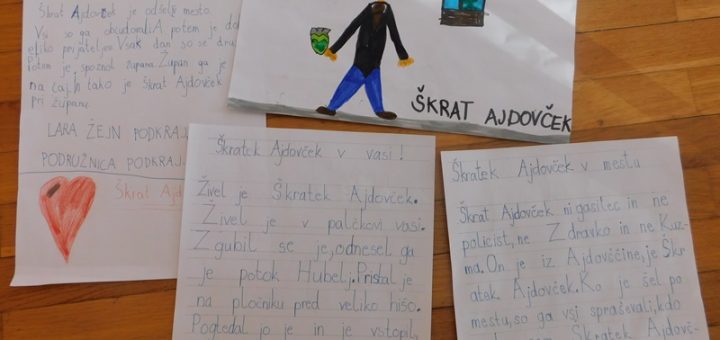 Škrat Ajdovček je odšel v mesto.
Vsi so ga občudovali. A potem je do
veliko prijateljev. Vsak dan so se dru
Potem je spoznal župana. Župan ga je
na čaj. In tako je škrat Ajdovček
pri županu.
LARA ŽEJN PODKRAJ,
PODRUŽNICA PODKRAJ.
Škrat Ajd
ŠKRAT AJDOVČEK
Škratek Ajdovček v vasi!
Živel je Škratek Ajdovček.
Živel je v palčkovi vasi.
Zgubil se je, odnesel ga
je potok Hubelj. Pristal je
na pločniku pred veliko hišo.
Pogledal jo je in je vstopil,
Škratek Ajdovček v mestu
Škrat Ajdovček ni gasilec in ne
policist, ne Zdravko in ne Kuz-
ma. On je iz Ajdovščine, je Škr
atek Ajdovček. Ko je šel po
mestu, so ga vsi spraševali, kdo
Škratek Ajdovč-